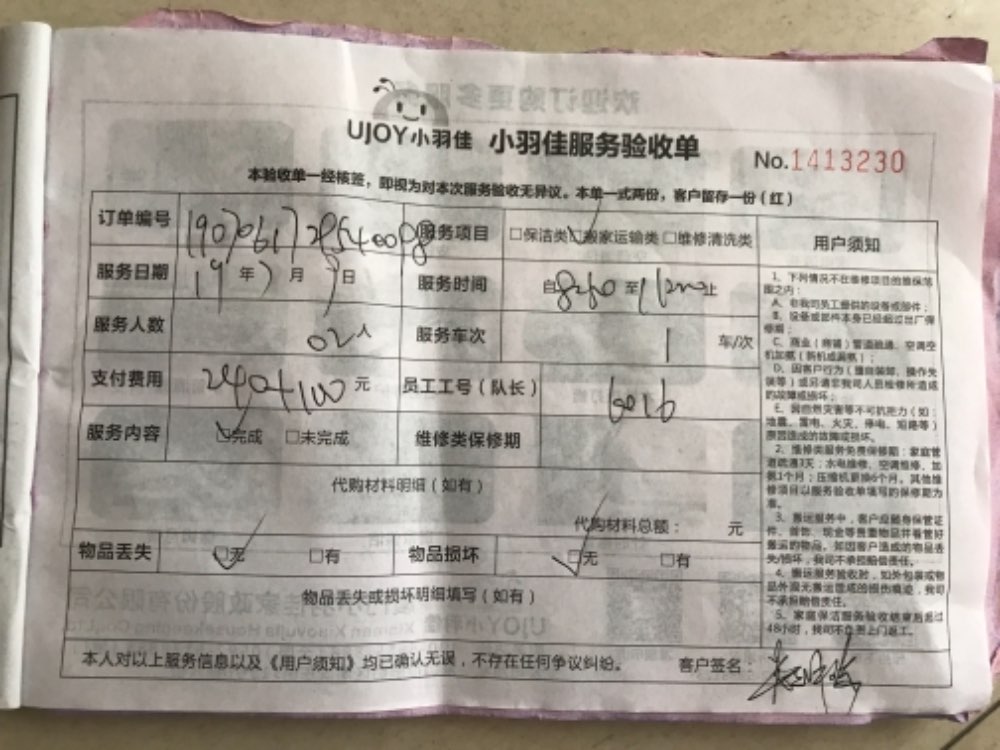 UJOY小羽佳 小羽佳服务验收单
No.1413230
本验收单一经核签，即视为对本次服务验收无异议。本单一式两份，客户留存一份（红）
订单编号 服务项目 □保洁类 □搬家运输类 □维修清洗类 用户须知
服务日期 19年7月7日 服务时间 自8:30至1 止
服务人数 02人 服务车次 1 车/次
支付费用 240+100元 员工工号（队长） 6016
服务内容 □完成 □未完成 维修类保修期
代购材料明细（如有）
代购材料总额： 元
物品丢失 □无 □有 物品损坏 □无 □有
物品丢失或损坏明细填写（如有）
本人对以上服务信息以及《用户须知》均已确认无误，不存在任何争议纠纷。 客户签名：
1、下列情况不在维修项目的维保范
围之内：
A、非我司员工提供的设备或部件；
B、设备或部件本身已经超过出厂保
修期；
C、商业（商铺）管道疏通、空调空
机加氨（拆机或漏氨）；
D、因客户行为（擅自装卸、操作失
误等）或另请非我司人员维修所造成
的故障或损坏；
E、因自然灾害等不可抗拒力（如：
地震、雷电、火灾、停电、短路等）
原因造成的故障或损坏。
2、维修类服务免费保修期：家庭管
道疏通3天；水电维修、空调维修、加
氨1个月；压缩机更换6个月。其他维
修项目以服务验收单填写的保修期为
准。
3、搬运服务中，客户应随身保管证
件、首饰、现金等贵重物品并看管好
搬运的物品。如因客户造成的物品丢
失/损坏，我司不承担赔偿责任。
4、搬运服务验收时，如外包装或物
品外观无搬运造成的损伤痕迹，我司
不承担赔偿责任。
5、家庭保洁服务验收结束后超过
48小时，我司不负责上门返工。